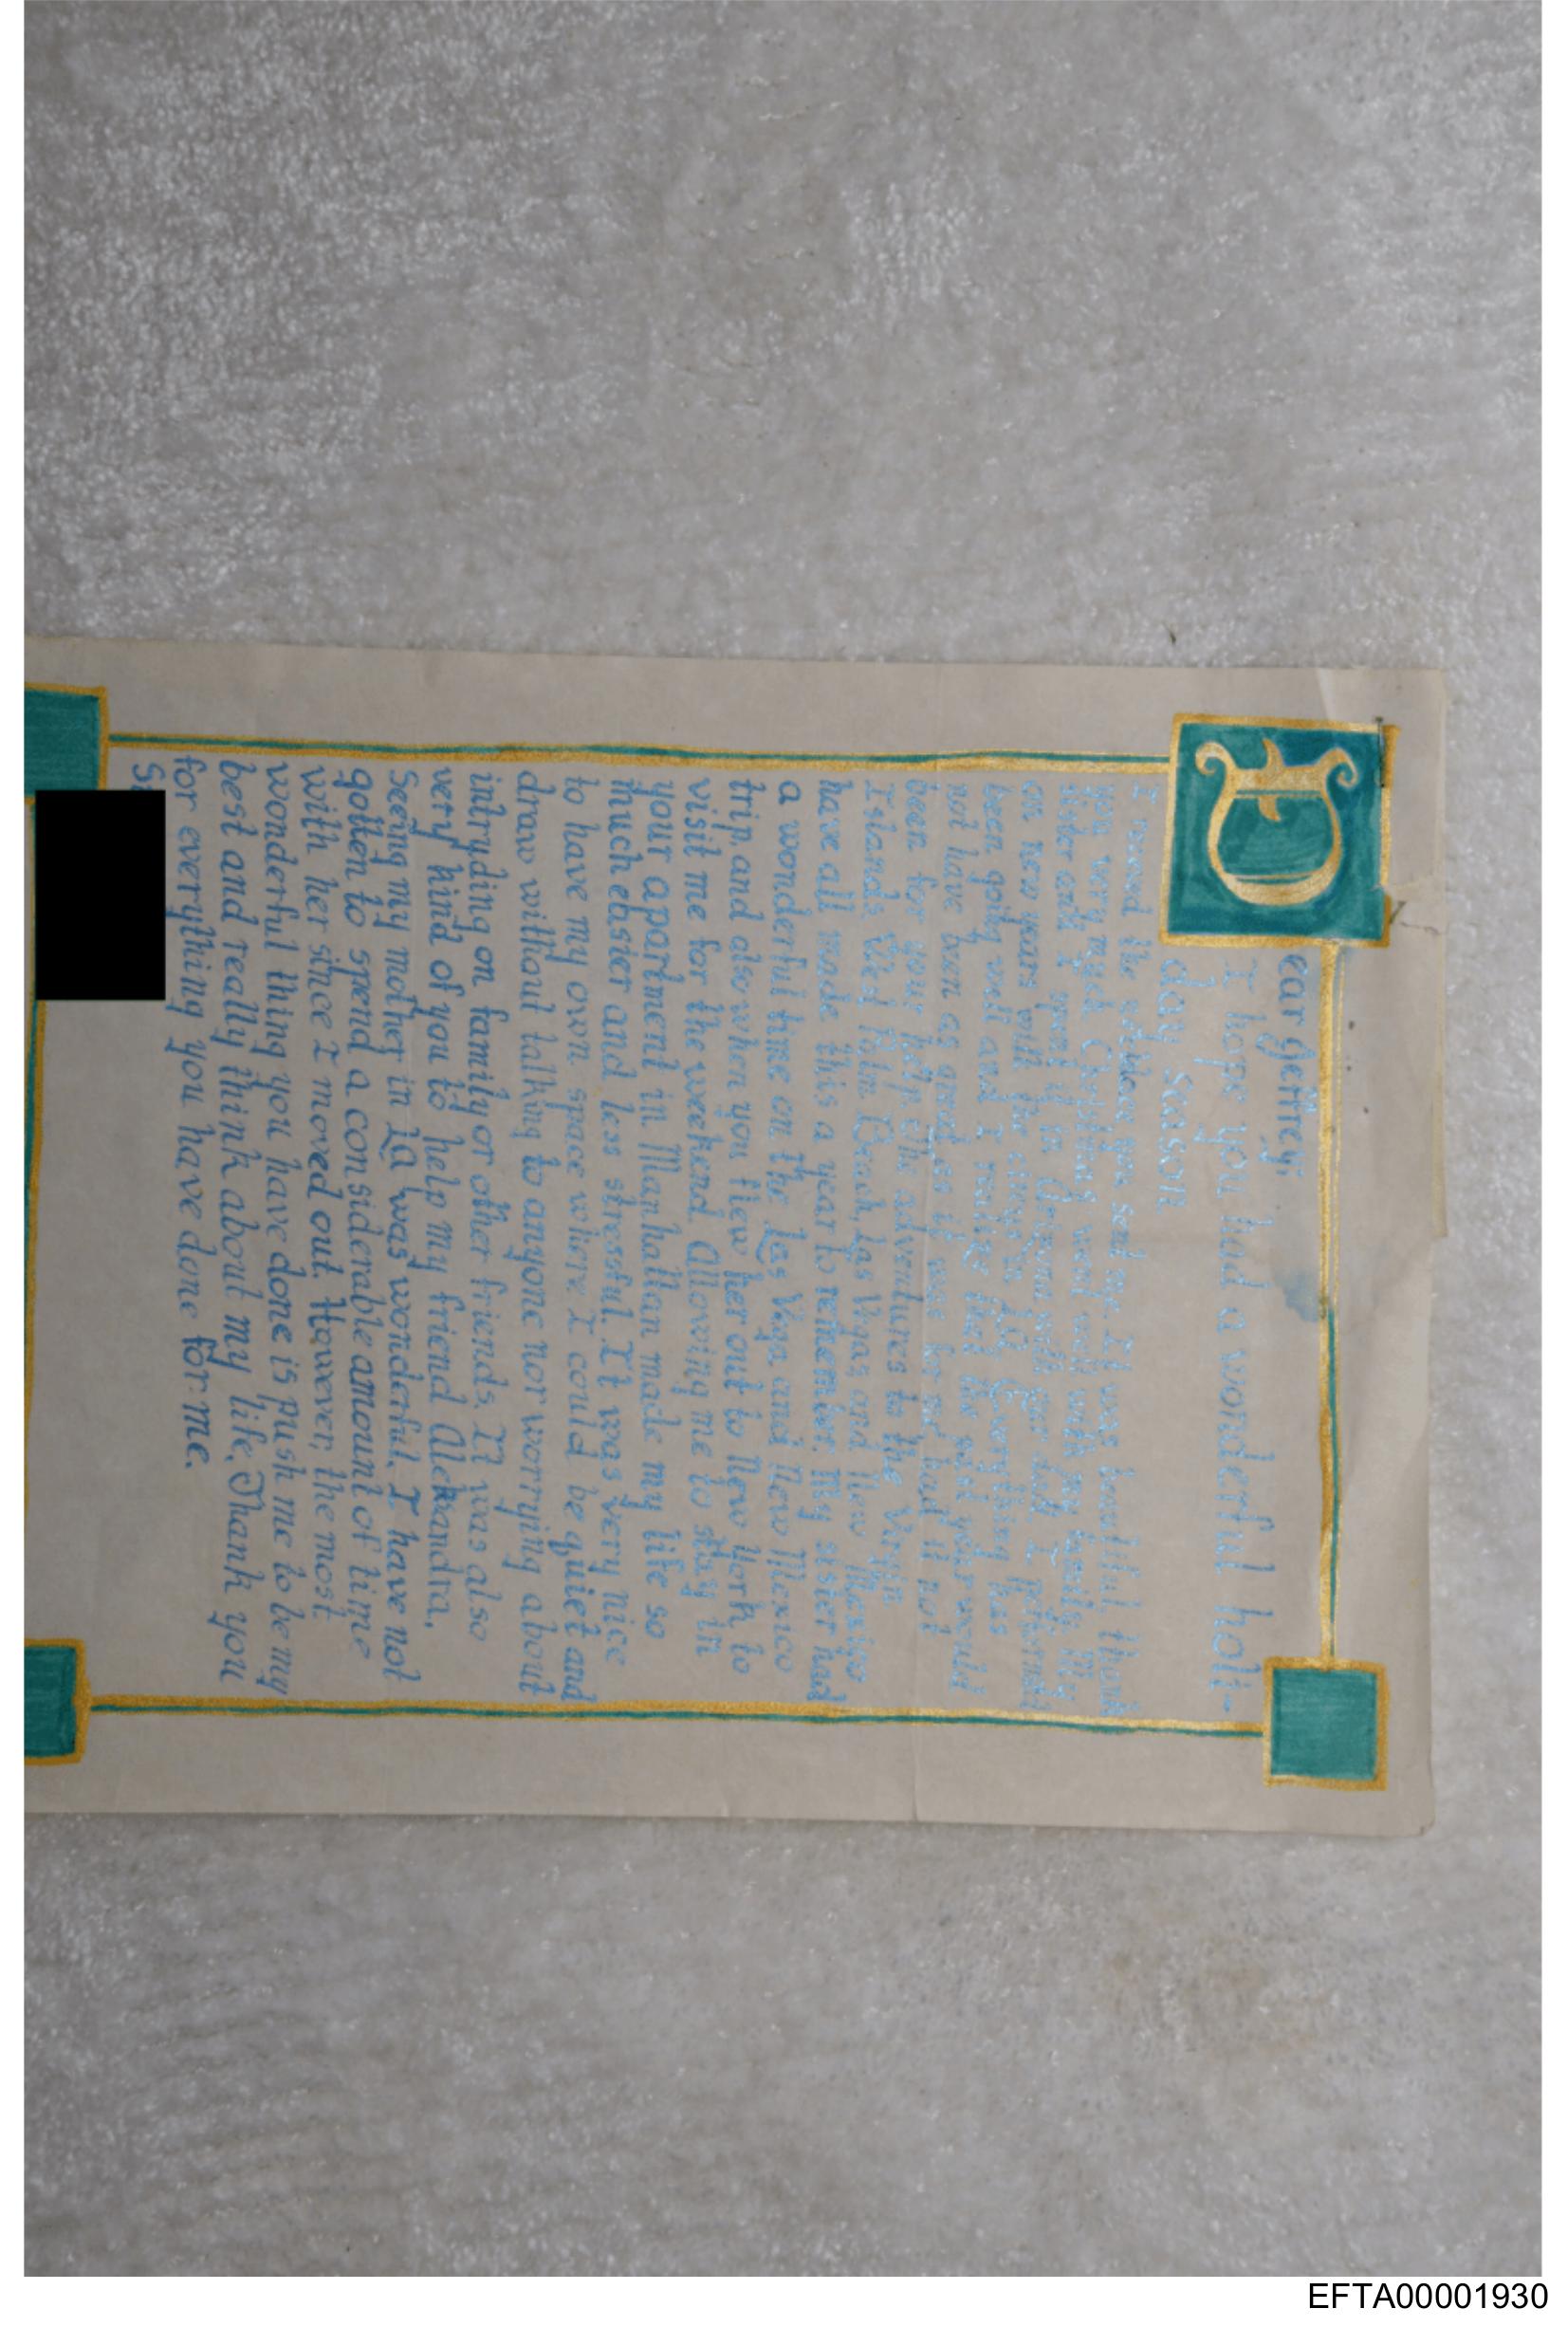 Dear Jeffrey,
I hope you had a wonderful holi-
day season.
I received the you send me. It was beautiful, thank
you very much. Christmas went well with my family. My
sister and I went to with our dad. I returned
on new years with the LA. Everything has
been going well and I realize that the past year would
not have been as good as it was for me had it not
been for your help. The adventures to the Virgin
Islands, West Palm Beach, Las Vegas and New Mexico
have all made this a year to remember. My sister had
a wonderful time on the Las Vega and New Mexico
trip and also when you flew her out to New York to
visit me for the weekend. Allowing me to stay in
your apartment in Manhattan made my life so
much easier and less stressful. It was very nice
to have my own space where I could be quiet and
draw without talking to anyone nor worrying about
intruding on family or other friends. It was also
very kind of you to help my friend Alexandra.
Seeing my mother in LA was wonderful. I have not
gotten to spend a considerable amount of time
with her since I moved out. However, the most
wonderful thing you have done is push me to be my
best and really think about my life. Thank you
for everything you have done for me.
EFTA00001930